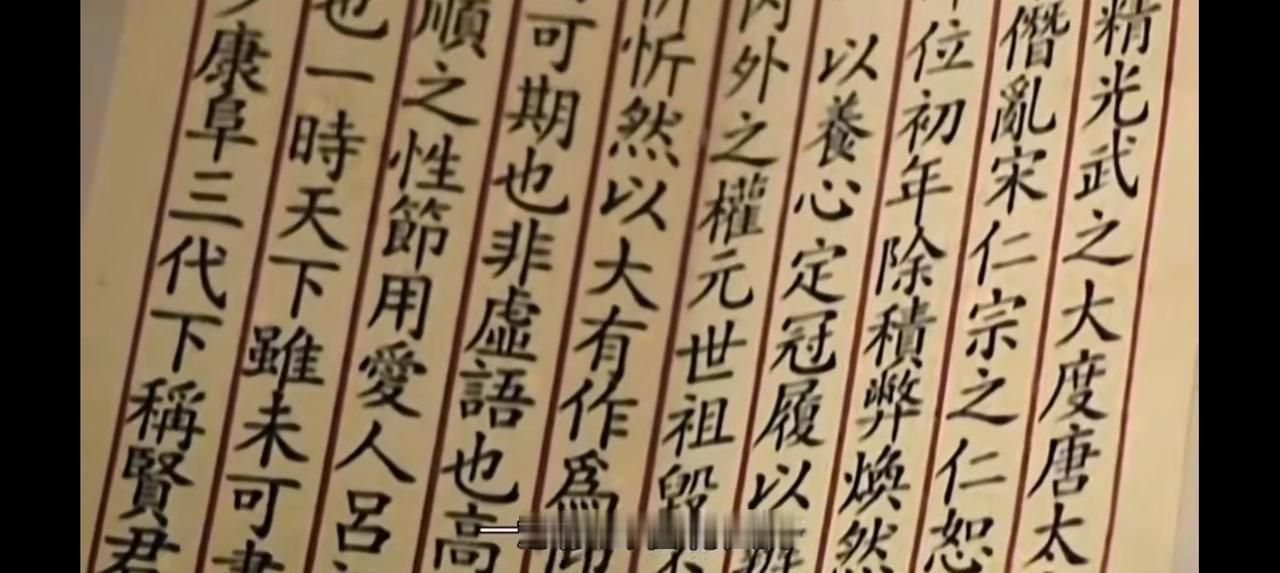 精光武之大度唐太
僭亂宋仁宗之仁恕
位初年除積弊煥然
以養心定冠履以
外之權元世祖毀
忻然以大有作爲
可期也非虛語也高
順之性節用愛人呂
也一時天下雖未可
康阜三代下稱賢君